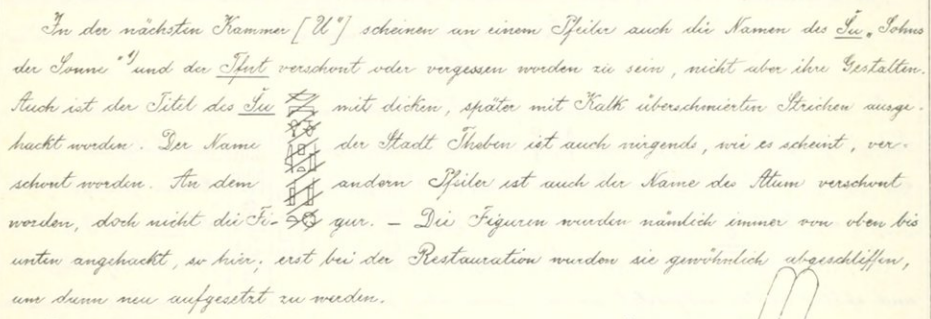 In der nächsten Kammer [U"] scheinen an einem Pfeiler auch die Namen des Šu „Sohns
der Sonne" 1) und der Tfnt verschont oder vergessen worden zu sein, nicht aber ihre Gestalten.
Auch ist der Titel des Šu mit dicken, später mit Kalk überschmierten Strichen ausge-
hackt worden. Der Name der Stadt Theben ist auch nirgends, wie es scheint, ver-
schont worden. An dem andern Pfeiler ist auch der Name des Atum verschont
worden, doch nicht die Fi- gur. – Die Figuren wurden nämlich immer von oben bis
unten angehackt, so hier; erst bei der Restauration wurden sie gewöhnlich abgeschliffen,
um dann neu aufgesetzt zu werden.